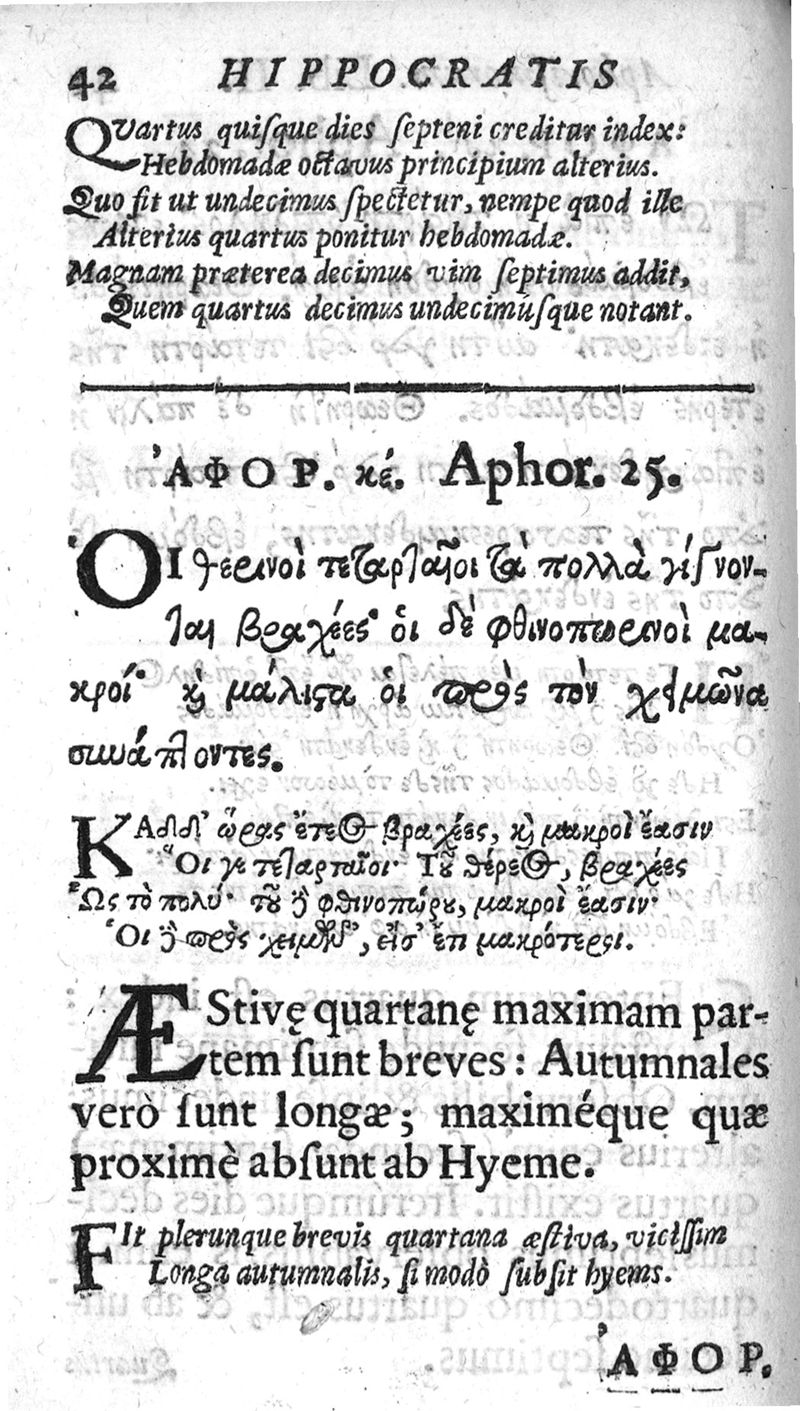 42 HIPPOCRATIS
QVartus quiſque dies ſepteni creditur index:
Hebdomadæ octavus principium alterius.
Quo fit ut undecimus ſpectetur, nempe quod ille
Alterius quartus ponitur hebdomadæ.
Magnam præterea decimus vim ſeptimus addit,
Quem quartus decimus undecimúſque notant.
ἈΦΟΡ. κέ. Aphor. 25.
ὉΙ θερινοὶ τεταρταῖοι τὰ πολλὰ γίγνον-
ται βραχέες· ὁι δὲ φθινοπωρινοὶ μα-
κροί· καὶ μάλιστα ὁι πρὸς τὸν χειμῶνα
συνάπτοντες.
ΚΑδδ' ὥρας ἔτεος βραχέες, καὶ μακροὶ ἔασιν
Ὅι γε τεταρταῖοι· Τοῦ θέρεος, βραχέες
Ὥς τὸ πολύ· τοῦ δὲ φθινοπώρου, μακροὶ ἔασιν·
Ὁι δὲ πρὸς εἰσ' ἔπι μακρότεροι.
ÆStivę quartanę maximam par-
tem ſunt breves: Autumnales
verò ſunt longæ; maximéque quæ
proximè abſunt ab Hyeme.
FIt plerunque brevis quartana æſtiva, viciſſim
Longa autumnalis, ſi modò ſubſit hyems.
ἈΦΟΡ.